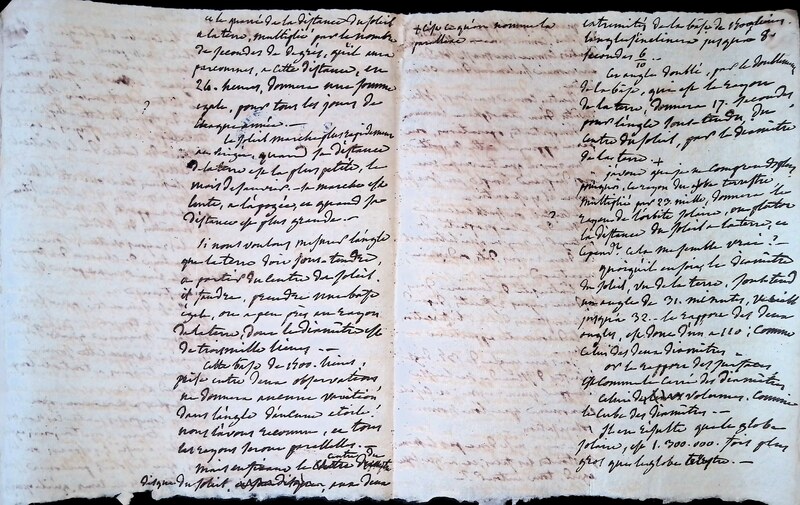 et le quarré de la distance du soleil
a la terre, multiplié par le nombre
de secondes de degrés, qu'il aura
parcourus, a cette distance, en
24. heures, donnera une somme
egale, pour tous les jours de
chaque année. —
?
le soleil marche plus rapidement
au perigée, quand sa distance
de la terre est la plus petite, le
mois de janvier. sa marche est
lente, a l'apogée, ou quand sa
distance est plus grande. —
si nous voulons mesurer l'angle
que la terre doit sous-tendre,
a partir du centre du soleil,
il faudra, prendre une base
égale, ou a peu près au rayon
de la terre, dont le diamètre est
de trois mille lieues. —
cette base de 1500. lieues,
prise entre deux observations
ne donnera aucune variation
dans l'angle d'aucune etoile!
nous l'avons reconnu, et tous
les rayons seront paralleles. —
mais en prenant le centre du
disque du soleil, aux deux
+ c'est ce qu'on nomme la
parallaxe —
extremités de la base de 1500 lieues.
l'angle s'inclinera jusqu'a 8
secondes 6/10 —
cet angle doublé, par le doublement
de la base, que est le rayon
de la terre, donnera 17. secondes
pour l'angle sous-tendu, du
centre du soleil, par le diamètre
de la terre. +
j'avoue que je ne comprends plus
pourquoi, le rayon du globe terrestre
multiplié par 23. mille, donnera le
rayon de l'orbite solaire, ou plutot
la distance du soleil a la terre, et
cepend.t cela me semble vrai?
?
quoiqu'il en soit, le diamètre
du soleil, vu de la terre, soustend
un angle de 31. minutes,
jusqu'a 32. — le rapport des deux
angles, est donc d'un a 110; comme
celui des deux diamètres —
or le rapport des surfaces
est comme le carré des diamètres
celui des volumes, comme
le cube des diamètres —
il en resulte que le globe
solaire, est 1.300.000. fois plus
gros que le globe terrestre. —